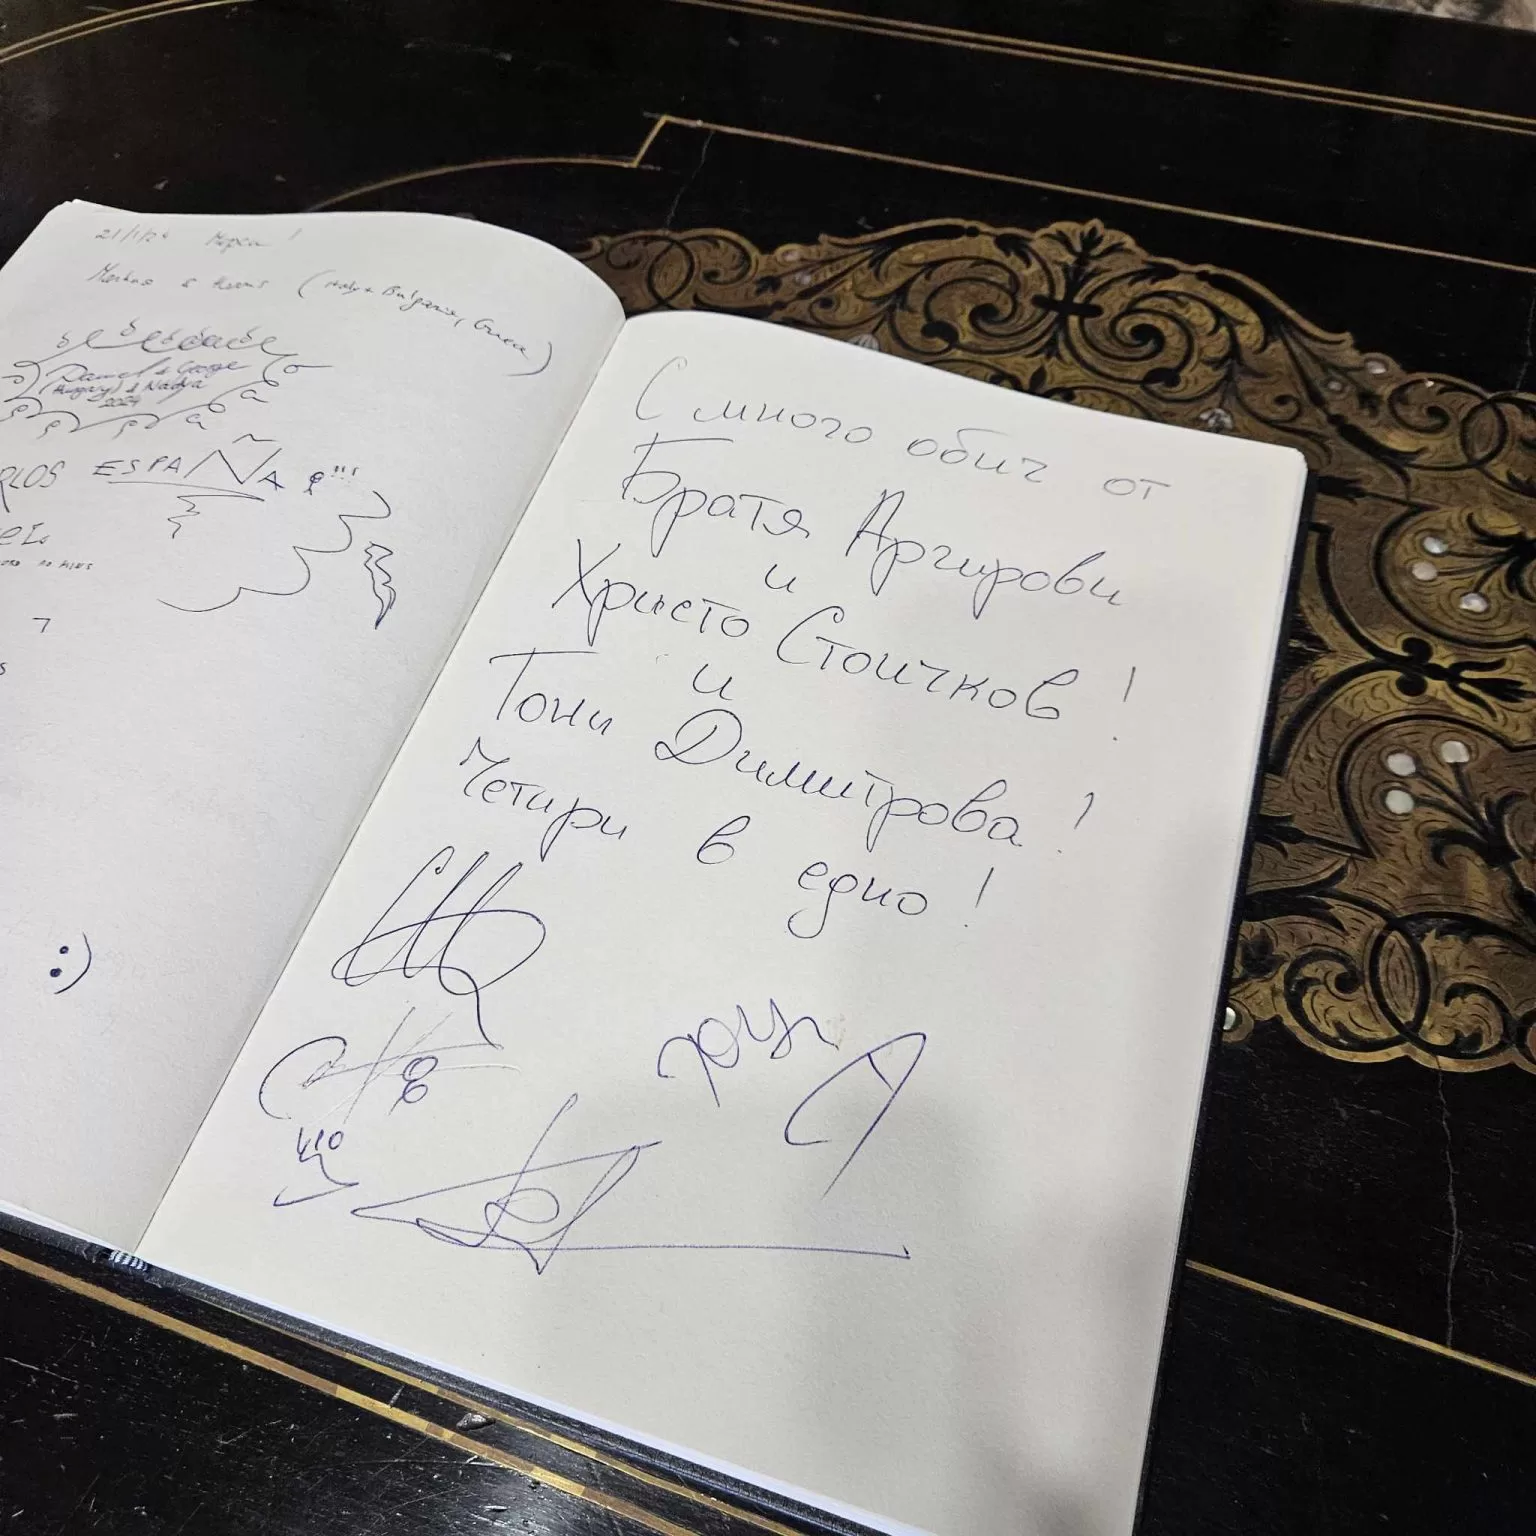 21/1/24 Мерси !
(Italy + Bulgaria, Greece)
Daniel & George
(Hungary) & Nadya
2024
RLOS ESPAÑA !!!
7
:)
С много обич от
Братя Аргирови
и
Христо Стоичков !
и
Тони Димитрова !
Четири в едно !